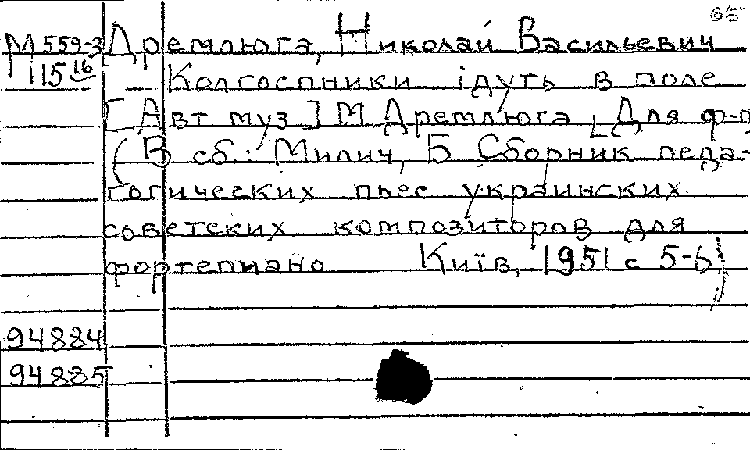 65
М 559-3 Дремлюга, Николай Васильевич
115 16 Колгоспники ідуть в поле
[Авт муз] М Дремлюга, Для ф-п
(В сб.: Милич, Б Сборник педа-
гогических пьес украинских
советских композиторов для
фортепиано Київ, 1951 с 5-6)
94884
94885